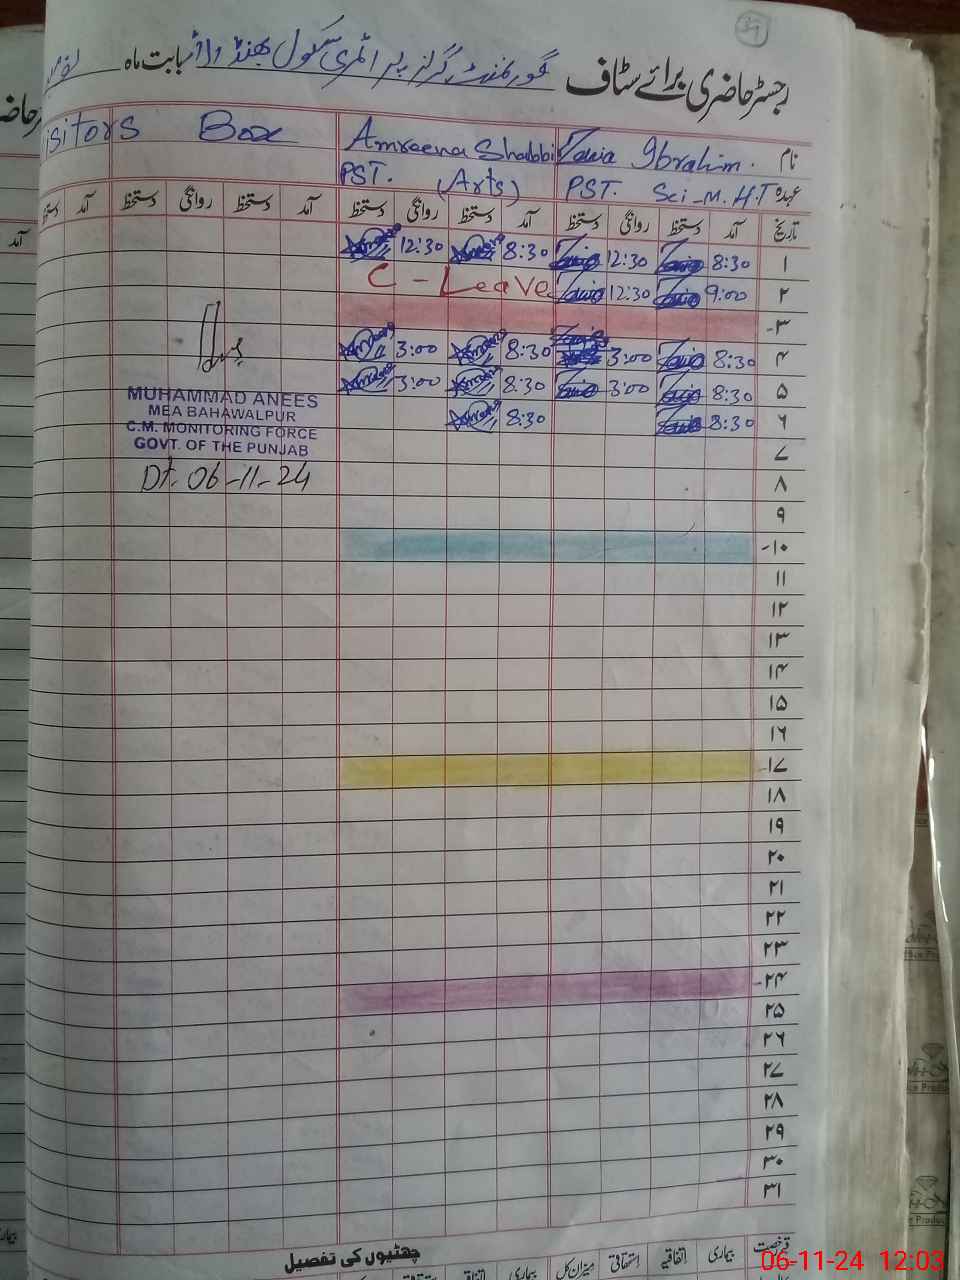 39
رجسٹر حاضری برائے سٹاف گورنمنٹ گرلز پرائمری سکول بھنڈ والا بابت ماہ
نام Ibrahim. Amreena Shabbi isitors Box
عہدہ PST. Sci-M. H.T PST. (Arts)
تاریخ آمد دستخط روانگی دستخط آمد دستخط روانگی دستخط آمد دستخط روانگی دستخط آمد
۱ 8:30 12:30 8:30 12:30
۲ 9:00 12:30 C - Leave
۳
۴ 8:30 3:00 8:30 3:00
۵ 8:30 3:00 8:30 3:00
۶ 8:30 8:30
۷
۸
۹
۱۰
۱۱
۱۲
۱۳
۱۴
۱۵
۱۶
۱۷
۱۸
۱۹
۲۰
۲۱
۲۲
۲۳
۲۴
۲۵
۲۶
۲۷
۲۸
۲۹
۳۰
۳۱
MUHAMMAD ANEES
MEA BAHAWALPUR
C.M. MONITORING FORCE
GOVT. OF THE PUNJAB
Dt. 06-11-24
چھٹیوں کی تفصیل
قسم رخصت بیماری اتفاقیہ استحقاقی میزان کل بیماری اتفاقیہ استحقاقی
06-11-24 12:03